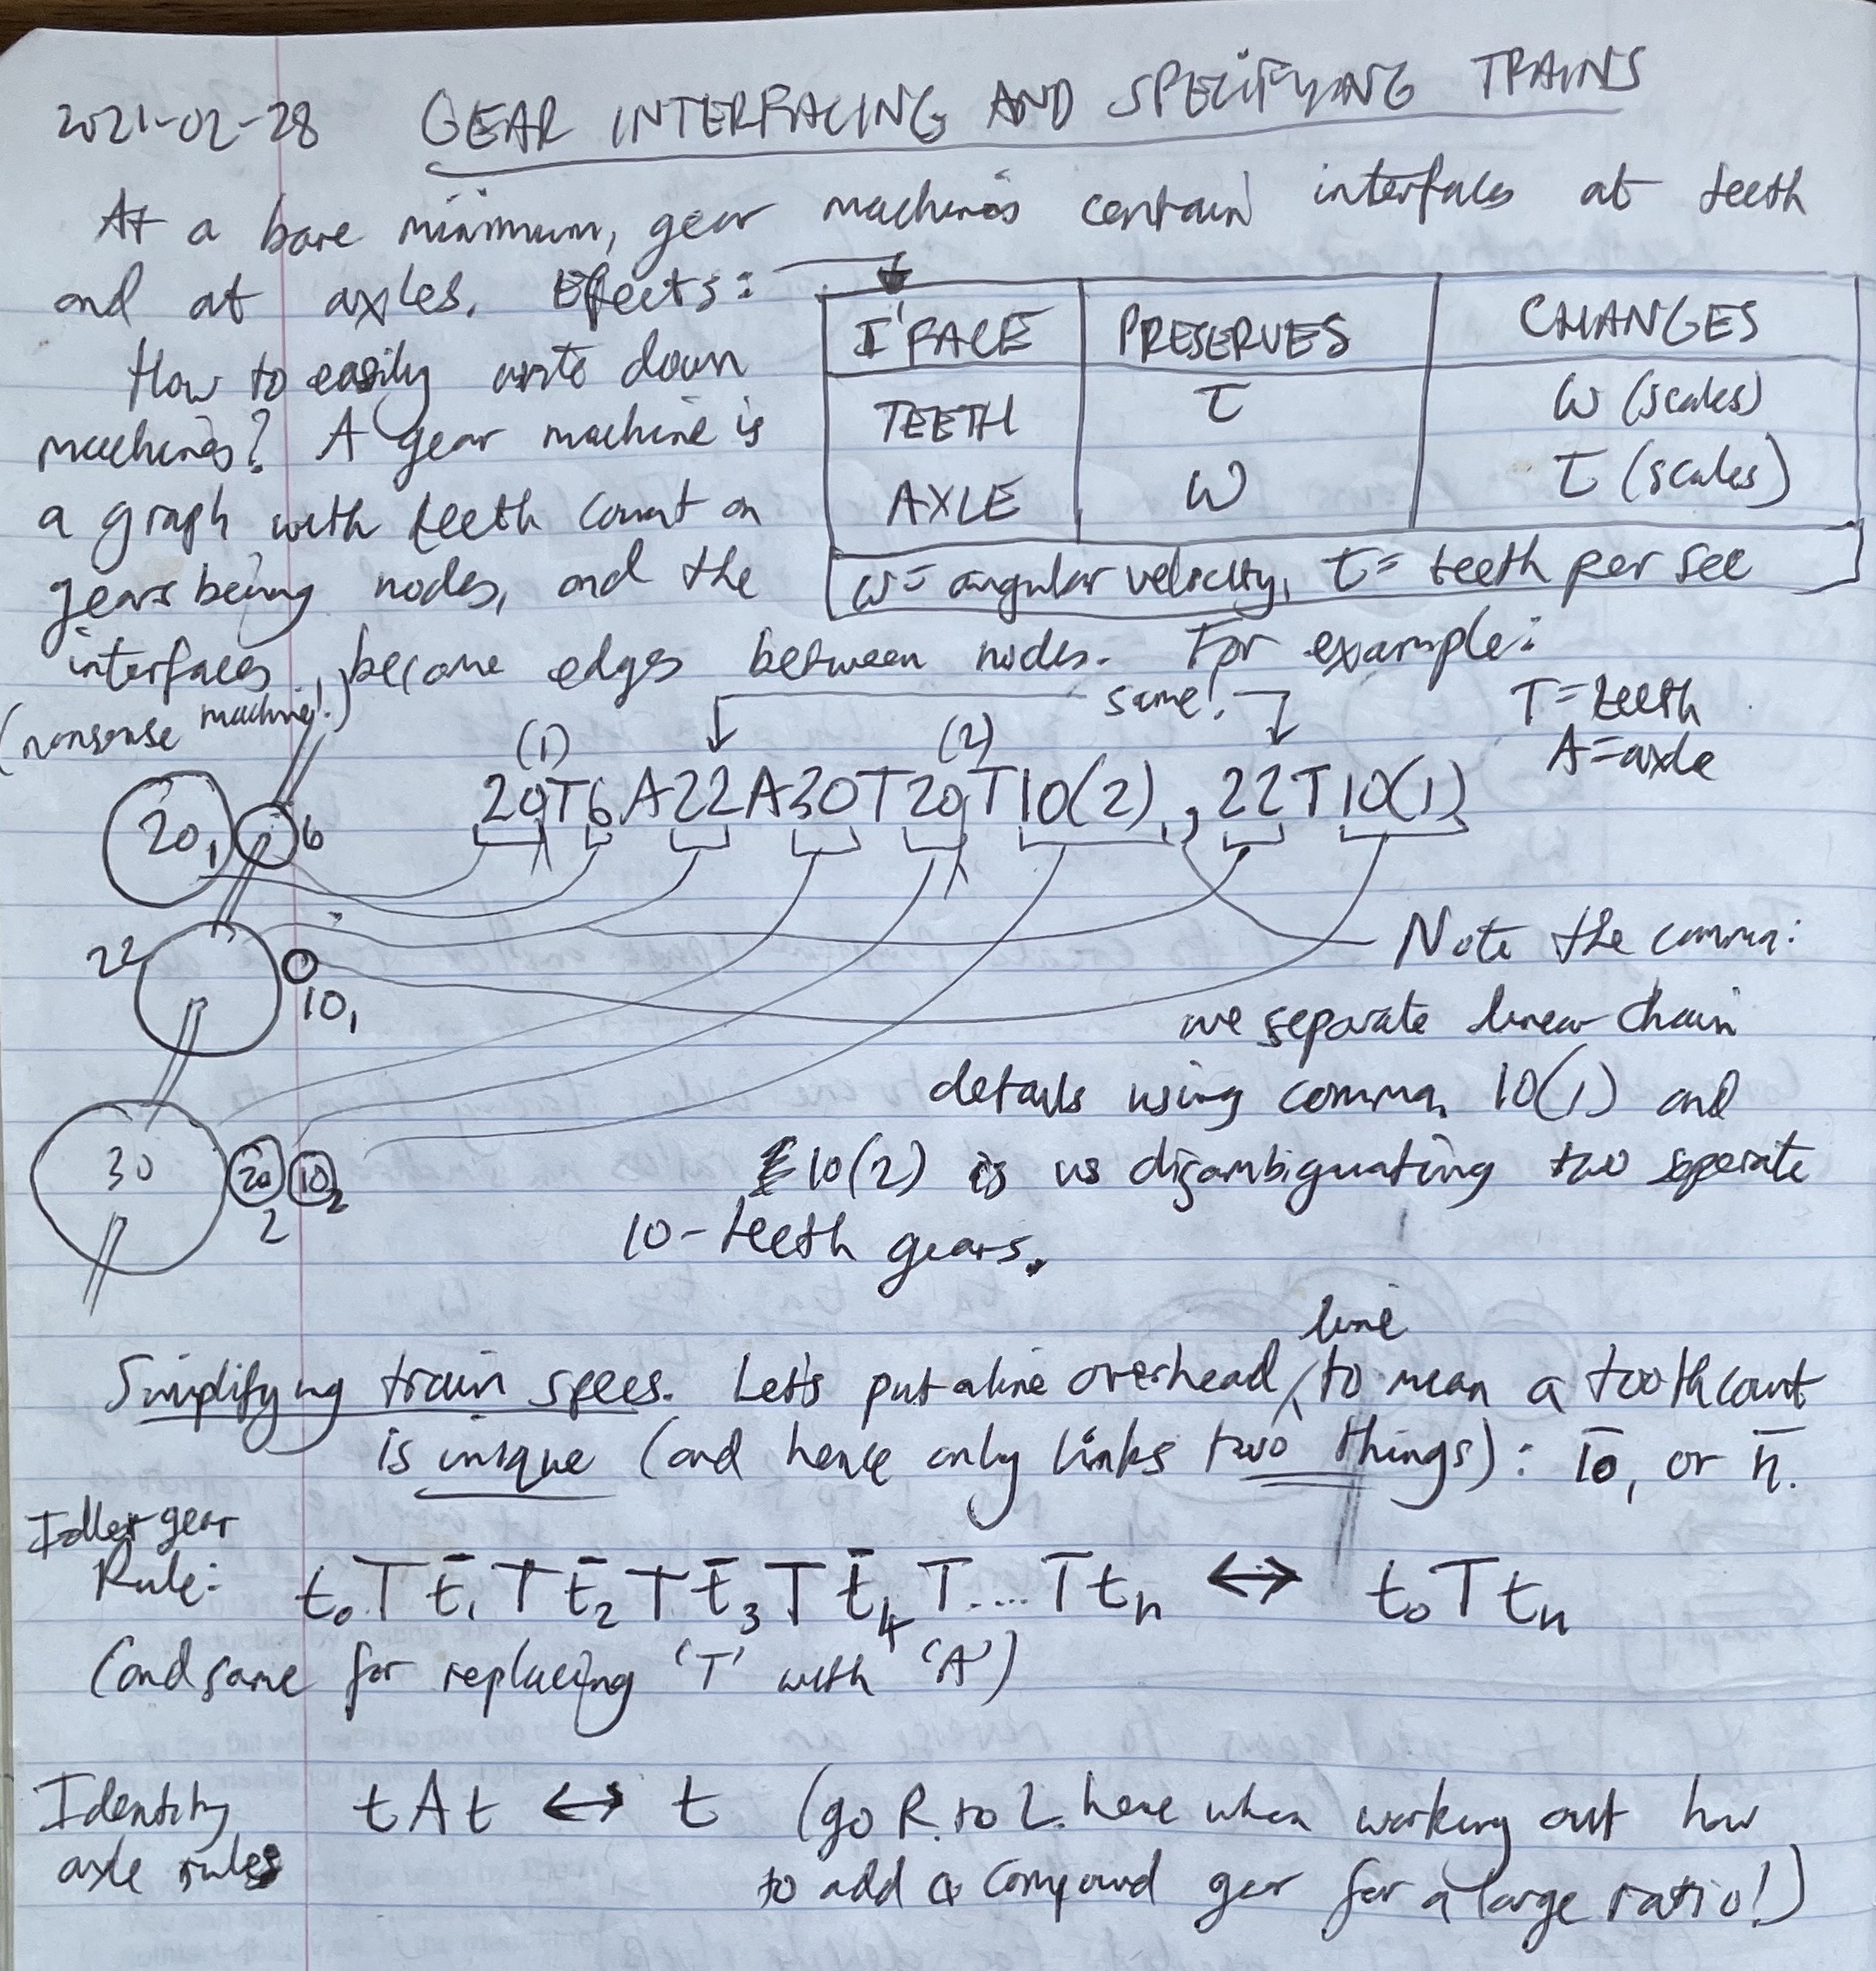 2021-02-28 GEAR INTERFACING AND SPECIFYING TRAINS
At a bare minimum, gear machines contain interfaces at teeth
and at axles. Effects:
I'FACE PRESERVES CHANGES
TEETH τ ω (scales)
AXLE ω τ (scales)
ω = angular velocity, τ = teeth per sec
How to easily write down
machines? A gear machine is
a graph with teeth count on
gears being nodes, and the
interfaces, become edges between nodes. For example:
(nonsense machine!)
same!
T = teeth
A = axle
(1) (2)
20T6A22A30T20T10(2), 22T10(1)
20₁ 6
22
10₁
30 20 10₂
2
Note the comma:
we separate linear chain
details using comma. 10(1) and
10(2) is us disambiguating two seperate
10-teeth gears.
Simplifying train specs. Let's put a line overhead line to mean a tooth count
is unique (and hence only links two things): 1̅0̅, or n̅.
Idler gear
Rule: t₀ T t̅₁ T t̅₂ T t̅₃ T t̅₄ T .... T tₙ ↔ t₀ T tₙ
(and same for replacing 'T' with 'A')
Identity tAt ↔ t (go R. to L. here when working out how
axle rules to add a compound gear for a large ratio!)